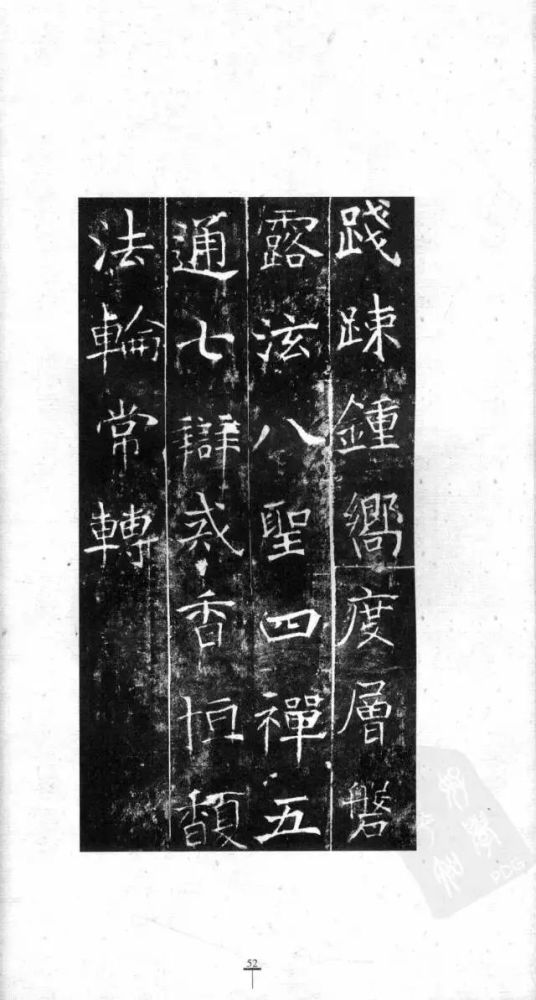 踐踈鍾嚮度層磐
露泫八聖四禪五
通七辯戒香恒馥
法輪常轉
52